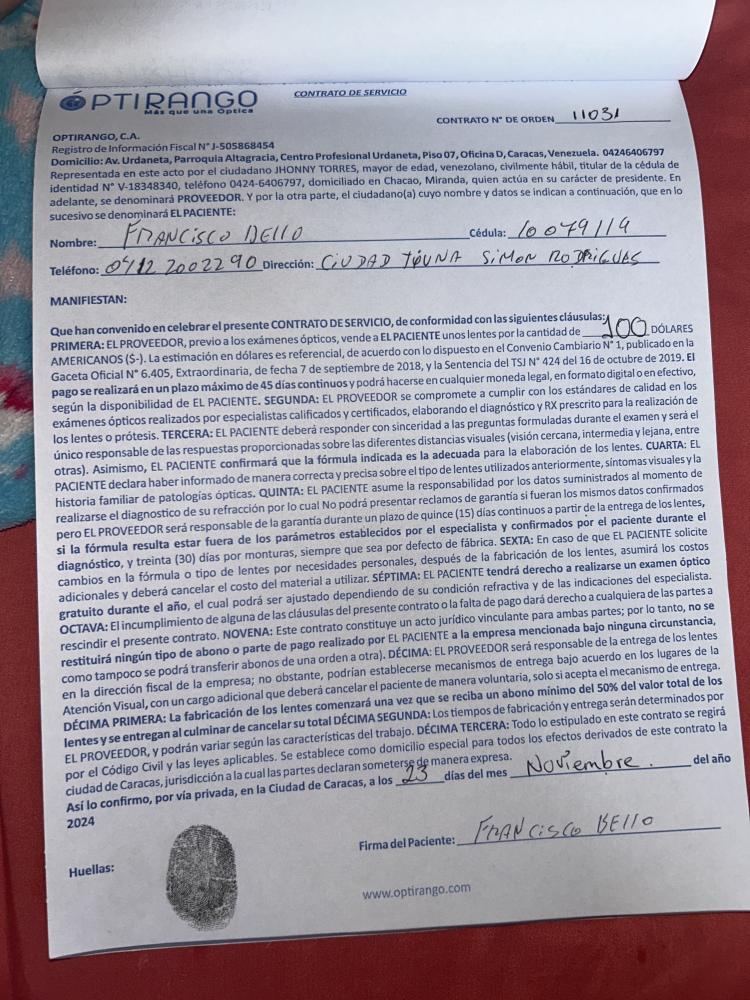 ÓPTIRANGO
Más que una Óptica
CONTRATO DE SERVICIO
CONTRATO N° DE ORDEN 11031
OPTIRANGO, C.A.
Registro de Información Fiscal N° J-505868454
Domicilio: Av. Urdaneta, Parroquia Altagracia, Centro Profesional Urdaneta, Piso 07, Oficina D, Caracas, Venezuela. 04246406797
Representada en este acto por el ciudadano JHONNY TORRES, mayor de edad, venezolano, civilmente hábil, titular de la cédula de
identidad N° V-18348340, teléfono 0424-6406797, domiciliado en Chacao, Miranda, quien actúa en su carácter de presidente. En
adelante, se denominará PROVEEDOR. Y por la otra parte, el ciudadano(a) cuyo nombre y datos se indican a continuación, que en lo
sucesivo se denominará EL PACIENTE:
Nombre: FRANCISCO BELLO Cédula: 10079119
Teléfono: 0412 2002290 Dirección: CIUDAD SIMON RODRIGUAS
MANIFIESTAN:
Que han convenido en celebrar el presente CONTRATO DE SERVICIO, de conformidad con las siguientes cláusulas:
PRIMERA: EL PROVEEDOR, previo a los exámenes ópticos, vende a EL PACIENTE unos lentes por la cantidad de 100 DÓLARES
AMERICANOS ($-). La estimación en dólares es referencial, de acuerdo con lo dispuesto en el Convenio Cambiario N° 1, publicado en la
Gaceta Oficial N° 6.405, Extraordinaria, de fecha 7 de septiembre de 2018, y la Sentencia del TSJ N° 424 del 16 de octubre de 2019. El
pago se realizará en un plazo máximo de 45 días continuos y podrá hacerse en cualquier moneda legal, en formato digital o en efectivo,
según la disponibilidad de EL PACIENTE. SEGUNDA: EL PROVEEDOR se compromete a cumplir con los estándares de calidad en los
exámenes ópticos realizados por especialistas calificados y certificados, elaborando el diagnóstico y RX prescrito para la realización de
los lentes o prótesis. TERCERA: EL PACIENTE deberá responder con sinceridad a las preguntas formuladas durante el examen y será el
único responsable de las respuestas proporcionadas sobre las diferentes distancias visuales (visión cercana, intermedia y lejana, entre
otras). Asimismo, EL PACIENTE confirmará que la fórmula indicada es la adecuada para la elaboración de los lentes. CUARTA: EL
PACIENTE declara haber informado de manera correcta y precisa sobre el tipo de lentes utilizados anteriormente, síntomas visuales y la
historia familiar de patologías ópticas. QUINTA: EL PACIENTE asume la responsabilidad por los datos suministrados al momento de
realizarse el diagnostico de su refracción por lo cual No podrá presentar reclamos de garantía si fueran los mismos datos confirmados
pero EL PROVEEDOR será responsable de la garantía durante un plazo de quince (15) días continuos a partir de la entrega de los lentes,
si la fórmula resulta estar fuera de los parámetros establecidos por el especialista y confirmados por el paciente durante el
diagnóstico, y treinta (30) días por monturas, siempre que sea por defecto de fábrica. SEXTA: En caso de que EL PACIENTE solicite
cambios en la fórmula o tipo de lentes por necesidades personales, después de la fabricación de los lentes, asumirá los costos
adicionales y deberá cancelar el costo del material a utilizar. SÉPTIMA: EL PACIENTE tendrá derecho a realizarse un examen óptico
gratuito durante el año, el cual podrá ser ajustado dependiendo de su condición refractiva y de las indicaciones del especialista.
OCTAVA: El incumplimiento de alguna de las cláusulas del presente contrato o la falta de pago dará derecho a cualquiera de las partes a
rescindir el presente contrato. NOVENA: Este contrato constituye un acto jurídico vinculante para ambas partes; por lo tanto, no se
restituirá ningún tipo de abono o parte de pago realizado por EL PACIENTE a la empresa mencionada bajo ninguna circunstancia,
como tampoco se podrá transferir abonos de una orden a otra). DÉCIMA: EL PROVEEDOR será responsable de la entrega de los lentes
en la dirección fiscal de la empresa; no obstante, podrían establecerse mecanismos de entrega bajo acuerdo en los lugares de la
Atención Visual, con un cargo adicional que deberá cancelar el paciente de manera voluntaria, solo si acepta el mecanismo de entrega.
DÉCIMA PRIMERA: La fabricación de los lentes comenzará una vez que se reciba un abono mínimo del 50% del valor total de los
lentes y se entregan al culminar de cancelar su total DÉCIMA SEGUNDA: Los tiempos de fabricación y entrega serán determinados por
EL PROVEEDOR, y podrán variar según las características del trabajo. DÉCIMA TERCERA: Todo lo estipulado en este contrato se regirá
por el Código Civil y las leyes aplicables. Se establece como domicilio especial para todos los efectos derivados de este contrato la
ciudad de Caracas, jurisdicción a la cual las partes declaran someterse de manera expresa.
Así lo confirmo, por vía privada, en la Ciudad de Caracas, a los 23 días del mes Noviembre. del año
2024
Firma del Paciente: FRANCISCO BELLO
Huellas:
www.optirango.com